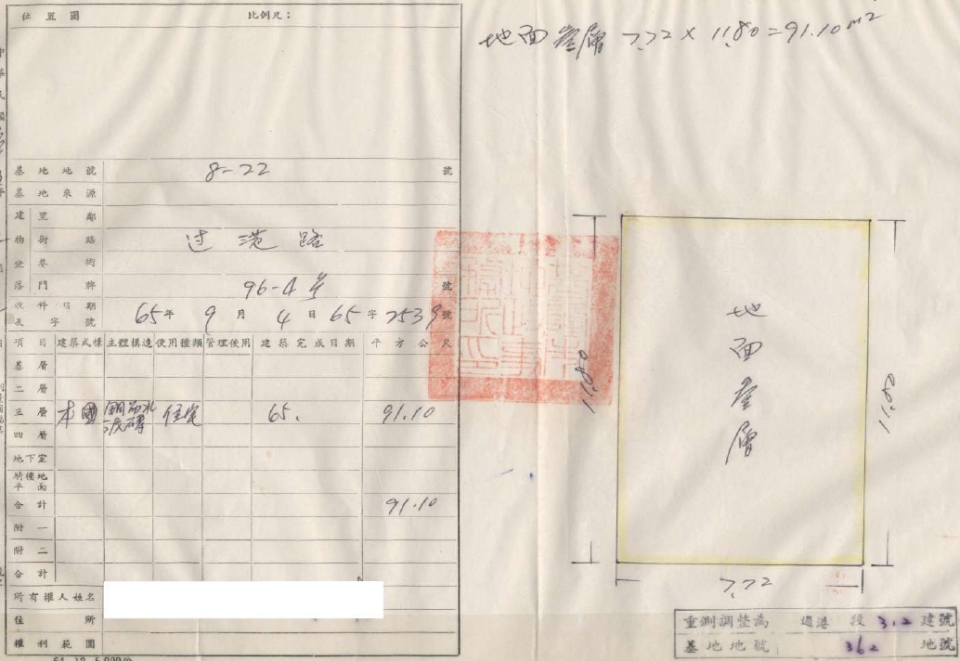 位置圖 比例尺：
地面壹層 7.72 × 11.80=91.10 m2
基地地號 8-22 號
基地來源
建 里 鄰
物 街 路 过港路
坐 巷 衖
落 門 牌 96-4号 號
收件日期 65年 9月 4日 65字 2539號
及字號
項目 建築式樣 主體構造 使用種類 管理使用 建築完成日期 平方公尺
基層
二層
三層 本國 住宅 65. 91.10
四層
地下室
騎樓地
平面
合計 91.10
附一
附二
合計
所有權人姓名
住所
權利範圍
地面壹層
11.80
11.80
7.72
重測調整為 過港 段 312 建號
基地地號 362 地號